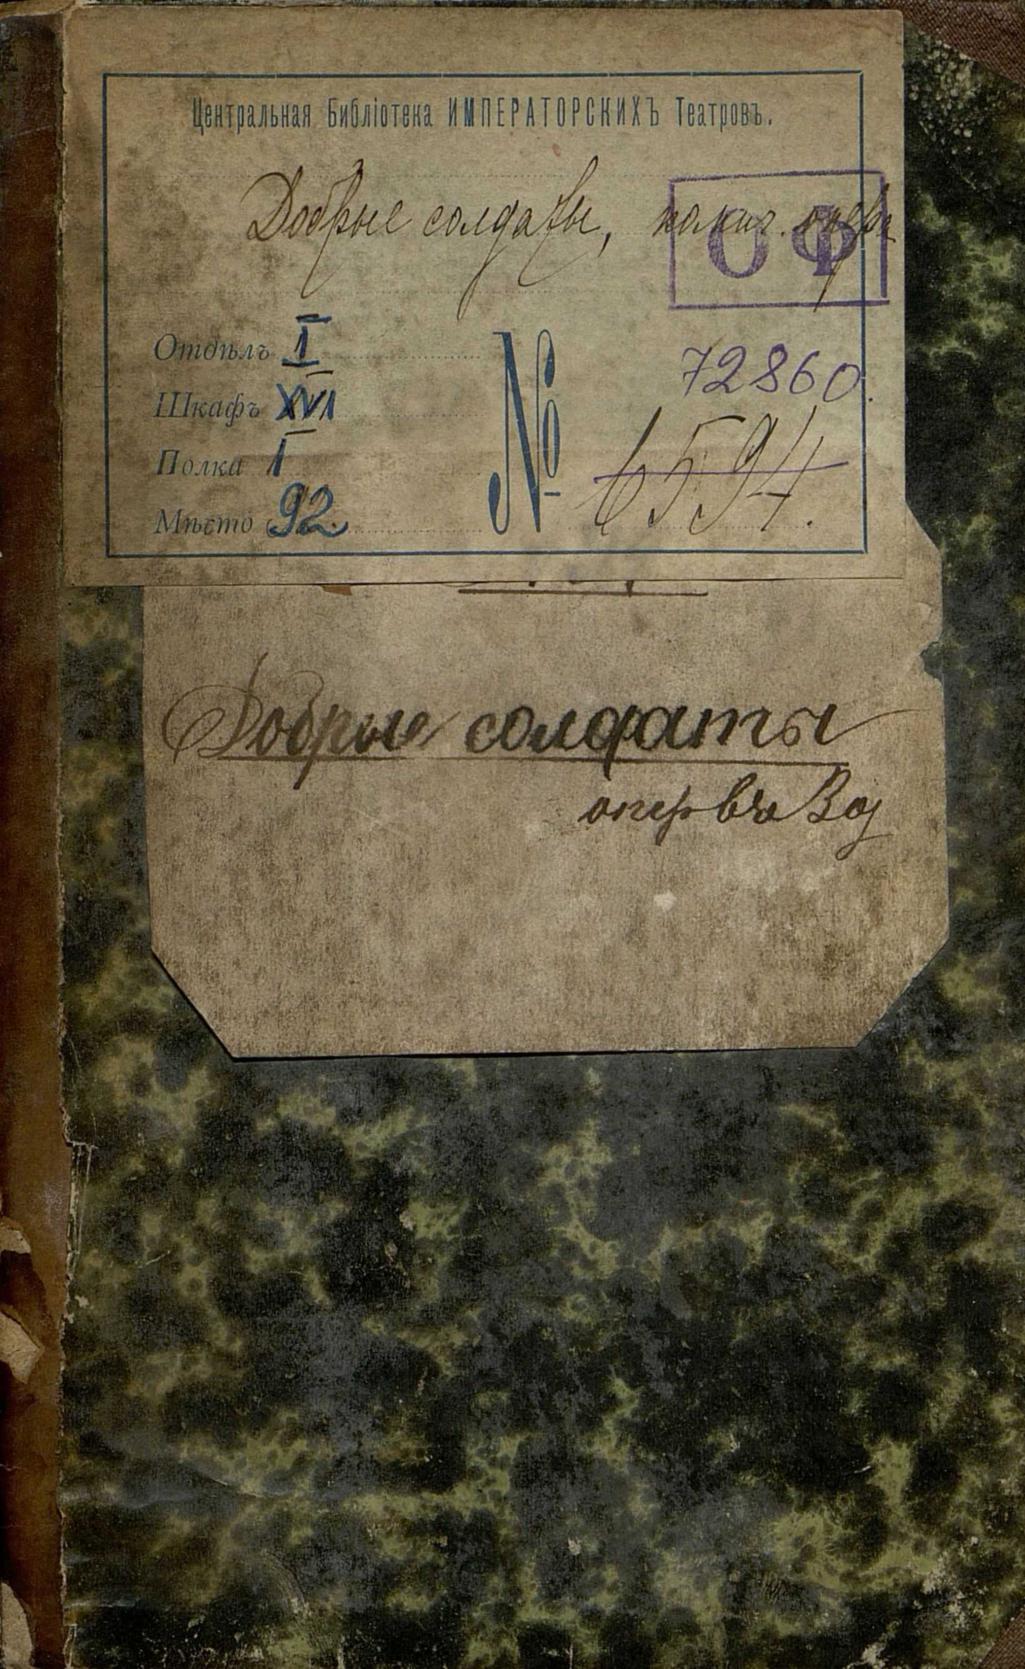 Центральная Библіотека ИМПЕРАТОРСКИХЪ Театровъ.
Добрые солдаты, комич. опера
О Ф
Отдѣлъ I
Шкафъ XVI
Полка I
Мѣсто 92.
№
72860.
6594.
Добрые солдаты
опера въ 3 д